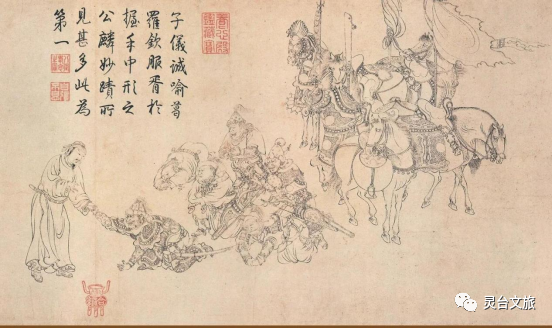 子儀誠喻葛
羅欽服胥於
握手中形之
公麟妙蹟所
見甚多此為
第一
灵台文旅